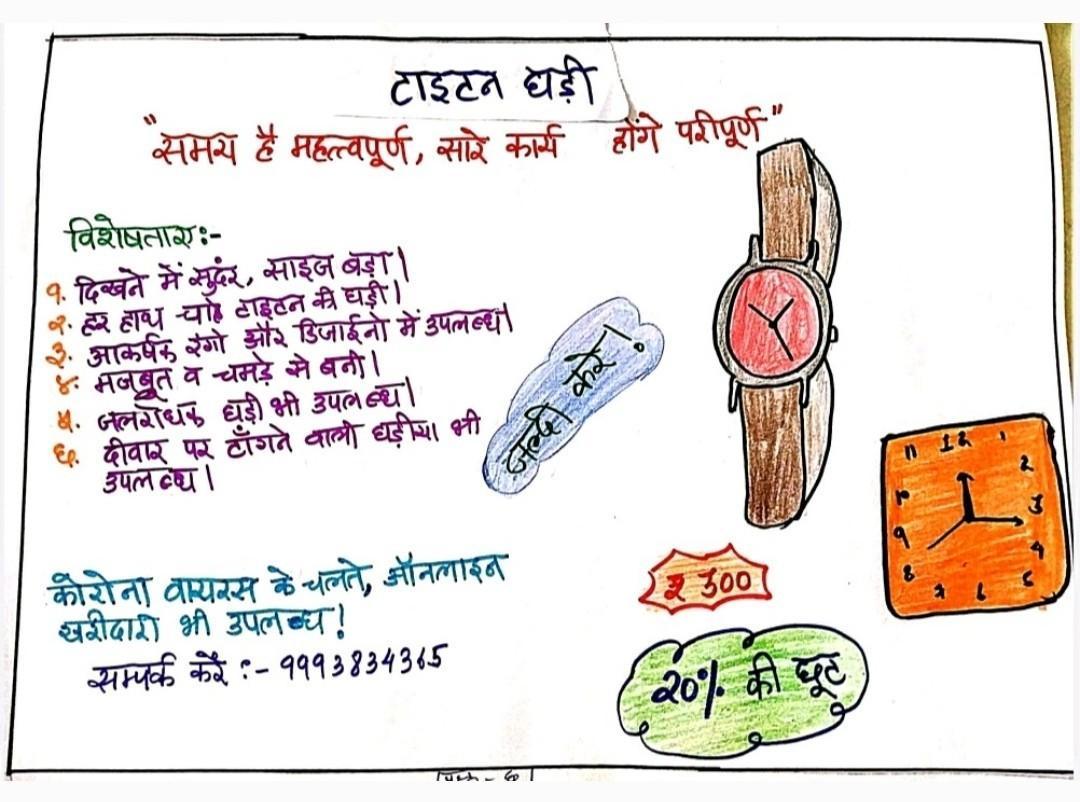 टाइटन घड़ी
"समय है महत्त्वपूर्ण, सारे कार्य होंगे परीपूर्ण"
विशेषताए:-
१. दिखने में सुदंर, साइज बड़ा।
२. हर हाथ चाहे टाइटन की घड़ी।
३. आकर्षक रंगो और डिजाईनो में उपलब्ध।
४. मजबूत व चमड़े से बनी।
५. जलरोधक घड़ी भी उपलब्ध।
६. दीवार पर टाँगने वाली घड़ीया भी
उपलब्ध।
जल्दी करे!
11 12 1
10 2
9 3
8 4
7 6 5
कोरोना वायरस के चलते, ऑनलाइन
खरीदारी भी उपलब्ध!
सम्पर्क करें :- 9993834365
₹ 300
20% की छूट